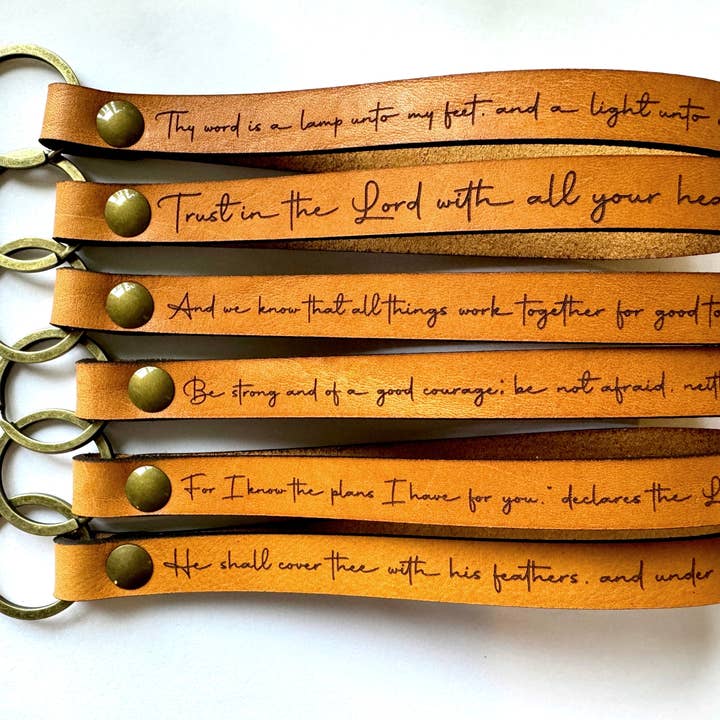 Thy word is a lamp unto my feet. and a light unto
Trust in the Lord with all your hea
And we know that all things work together for good to
Be strong and of a good courage; be not afraid. neit
For I know the plans I have for you," declares the L
He shall cover thee with his feathers. and under